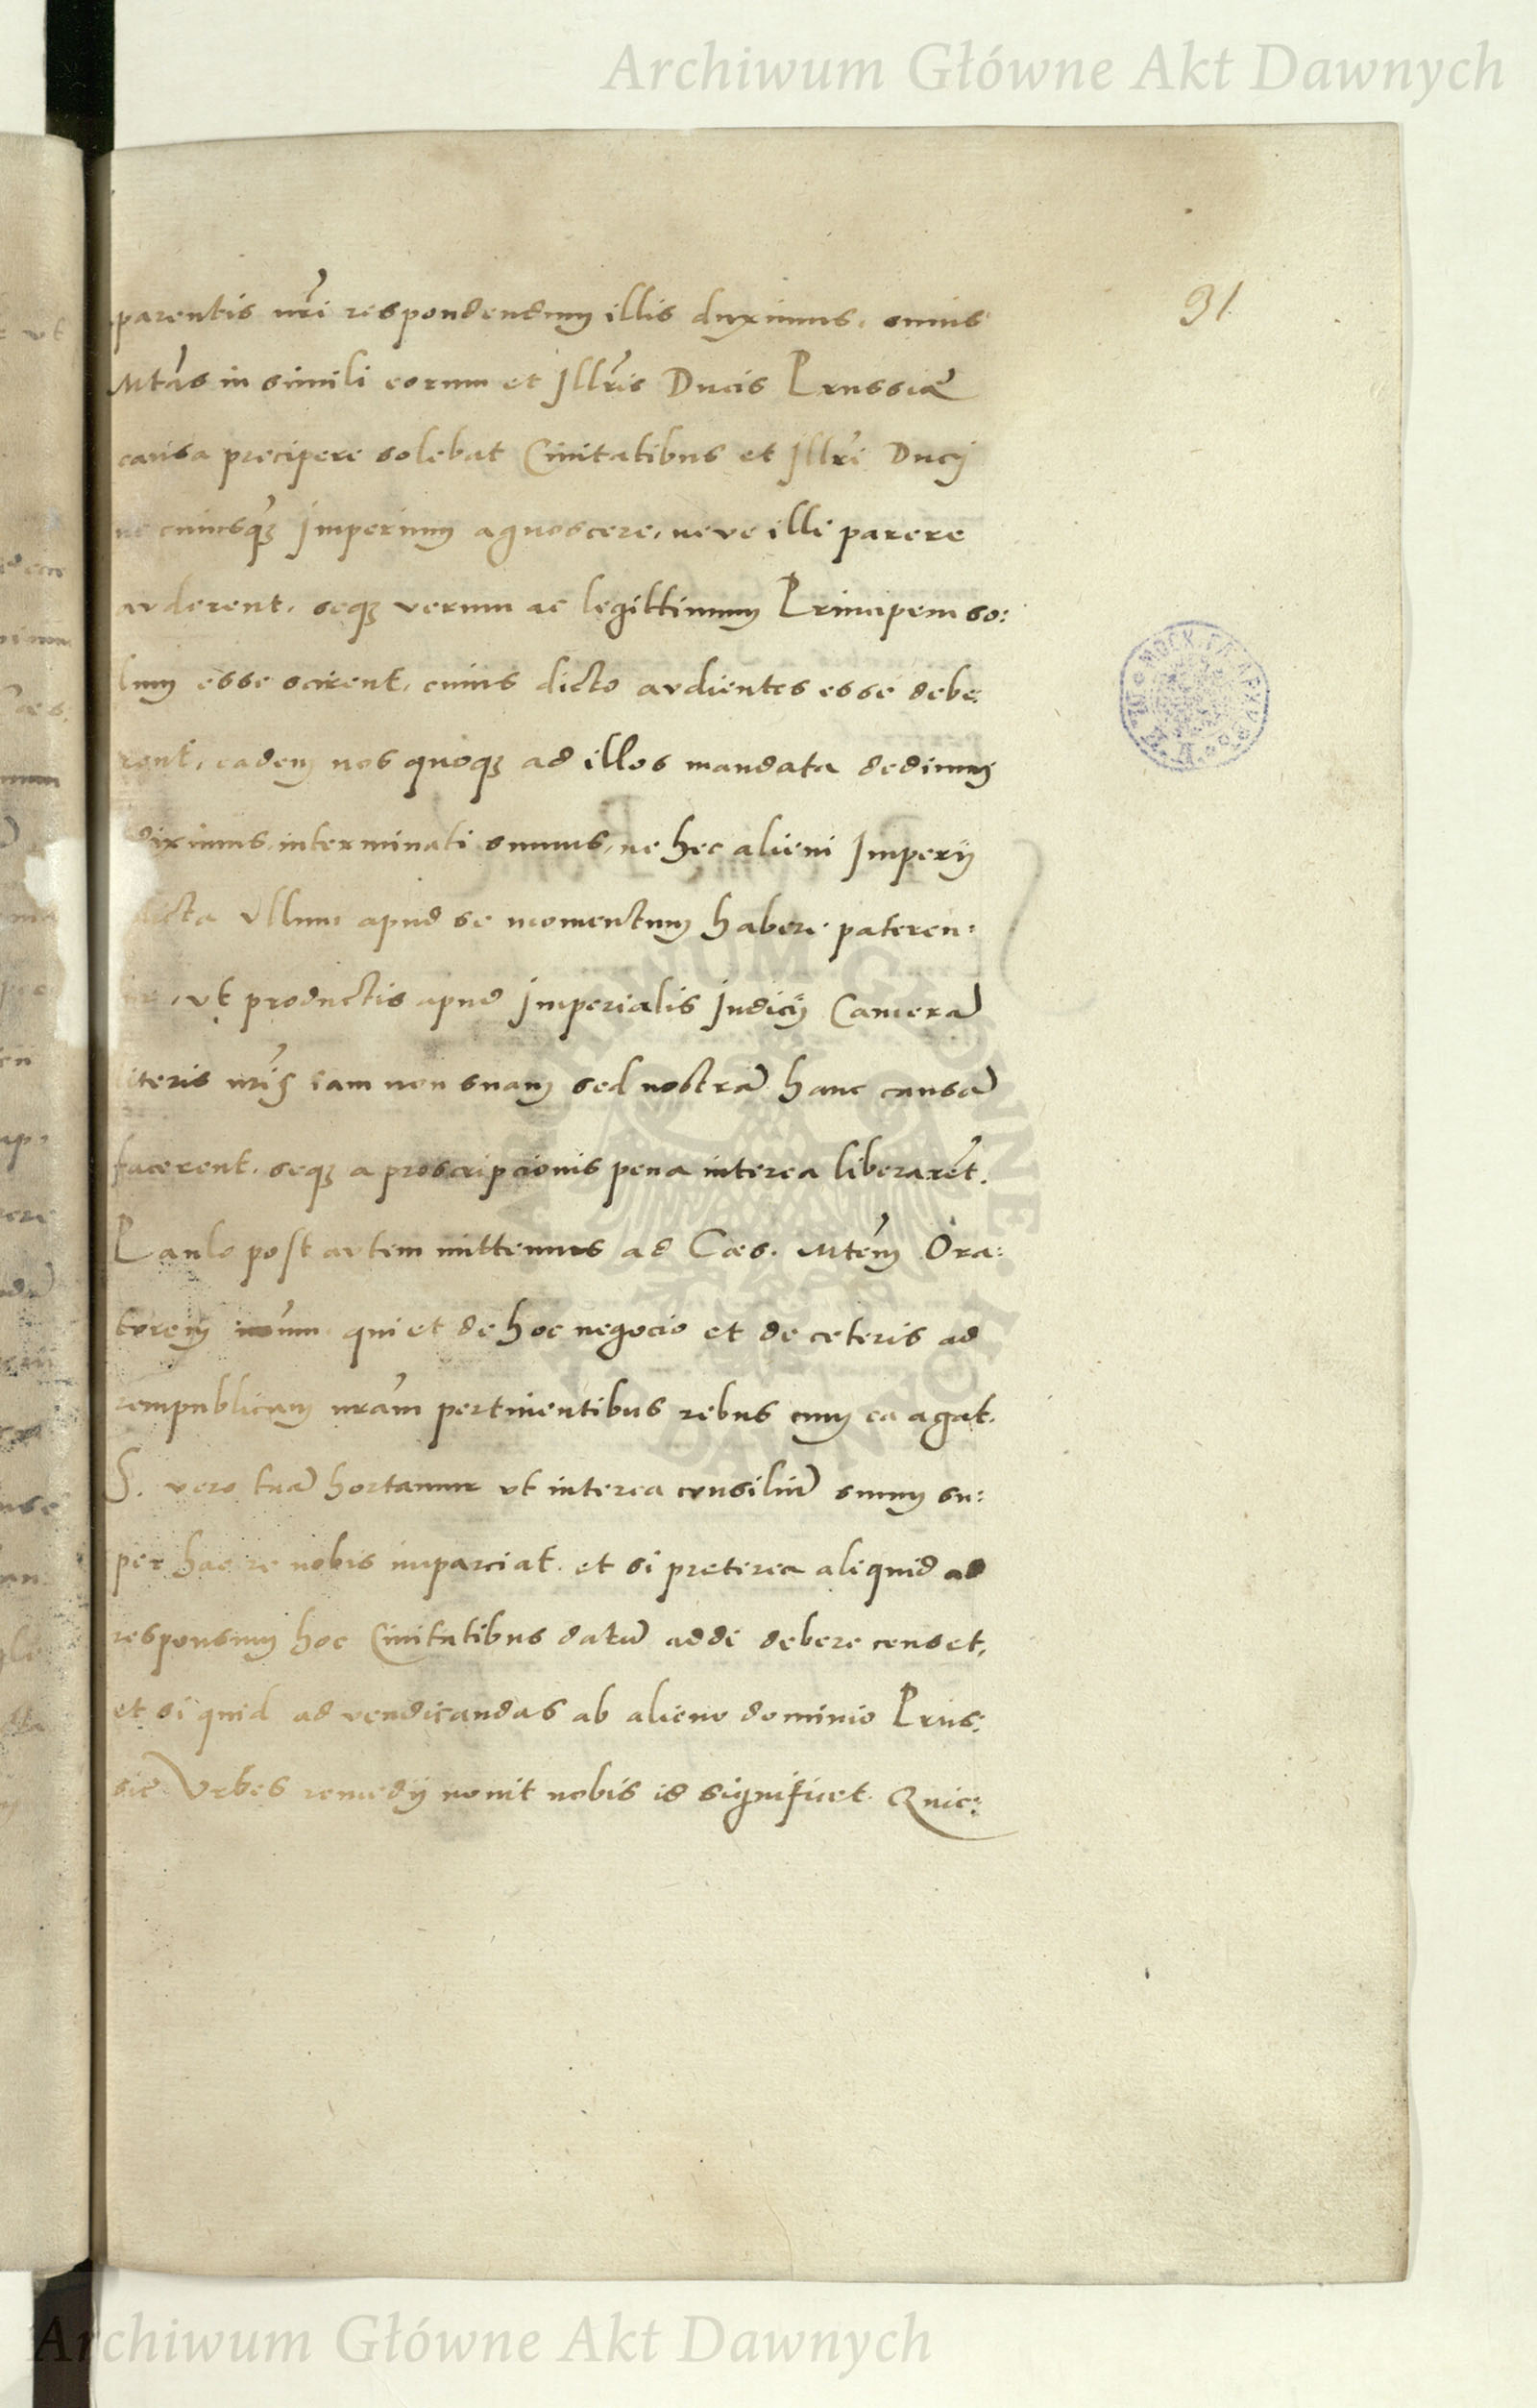 Archiwum Główne Akt Dawnych
91
parentis nr̃i respondendum illis duximus, cuius
Mtãs in simili eorum et Illr̃is Ducis Prussiæ
causa precipere solebat Ciuitatibus et Illr̃i Ducj
ne cuiusq̃ Imperium agnoscere, neve illi parere
avderent, seq̃ verum ac legittimum Principem so:
lum esse scirent, cuius dicto avdientes esse debe:
rent, eadem nos quoq̃ ad illos mandata dedimus
diximus interminati sumus, ne hec alieni Imperij
dicta vllum apud se momentum habere pateren:
tur, vt productis apud Imperialis Iudicij Camerã
literis nr̃is iam non suam sed nostrã hanc causã
facerent, seq̃ a proscripcionis pena interea liberarẽt.
Paulo post avtem mittemus ad Cæs. Mtẽm Ora:
torem nr̃um qui et de hoc negocio et de ceteris ad
rempublicam nrãm pertinentibus rebus cum ea agat.
S. vero tuã hortamur vt interea consiliũ suum su:
per hac re nobis imparciat, et si preterea aliquid ad
responsum hoc Ciuitatibus datũ addi debere censet,
et si quid ad vendicandas ab alieno dominio Prus:
sie Vrbes remedij nouit nobis id significet. Quic:
Archiwum Główne Akt Dawnych